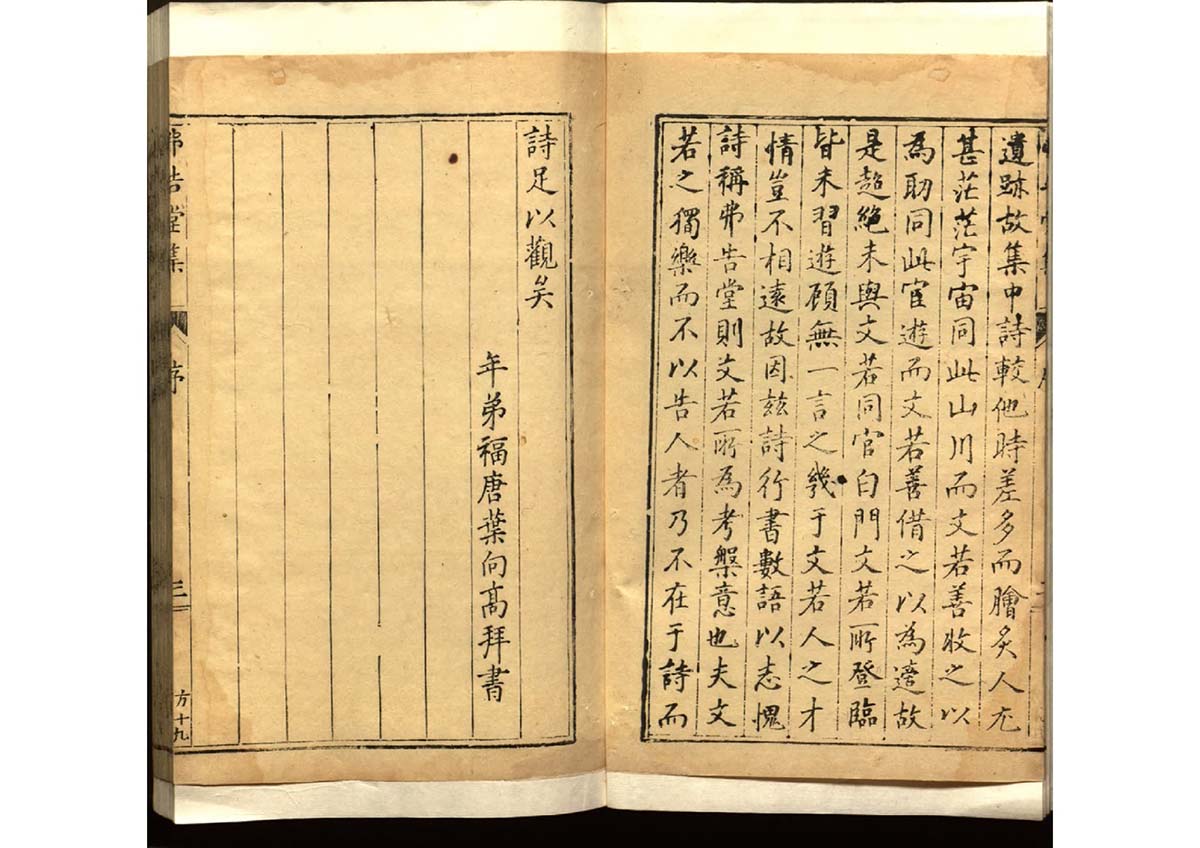 遺跡故集中詩較他時差多而膾炙人尤
甚茫茫宇宙同此山川而文若善收之以
為助同此宦遊而文若善借之以為適故
是超絕未與文若同官白門文若所登臨
皆未習遊顧無一言之幾于文若人之才
情豈不相遠故因茲詩行書數語以志愧
詩稱弗告堂則文若所為考槃意也夫文
若之獨樂而不以告人者乃不在于詩而
詩足以觀矣
年弟福唐葉向高拜書
弗告堂集 序 三 方十九